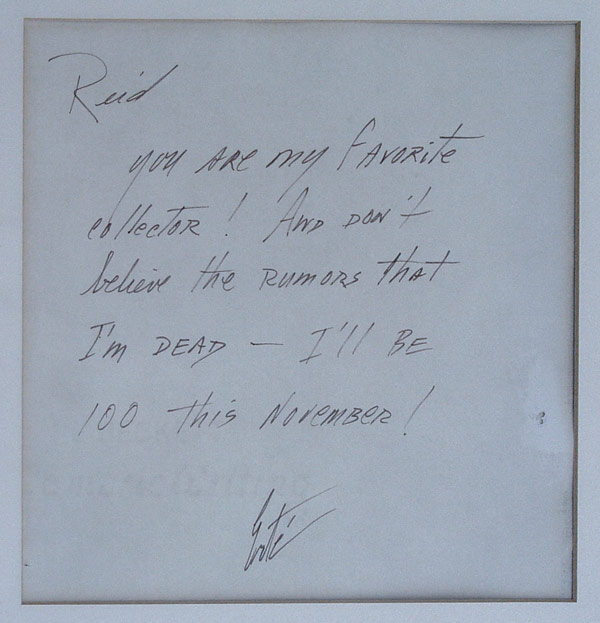 Reid
you are my favorite
collector! And don't
believe the rumors that
I'm dead — I'll be
100 this November!
Erté